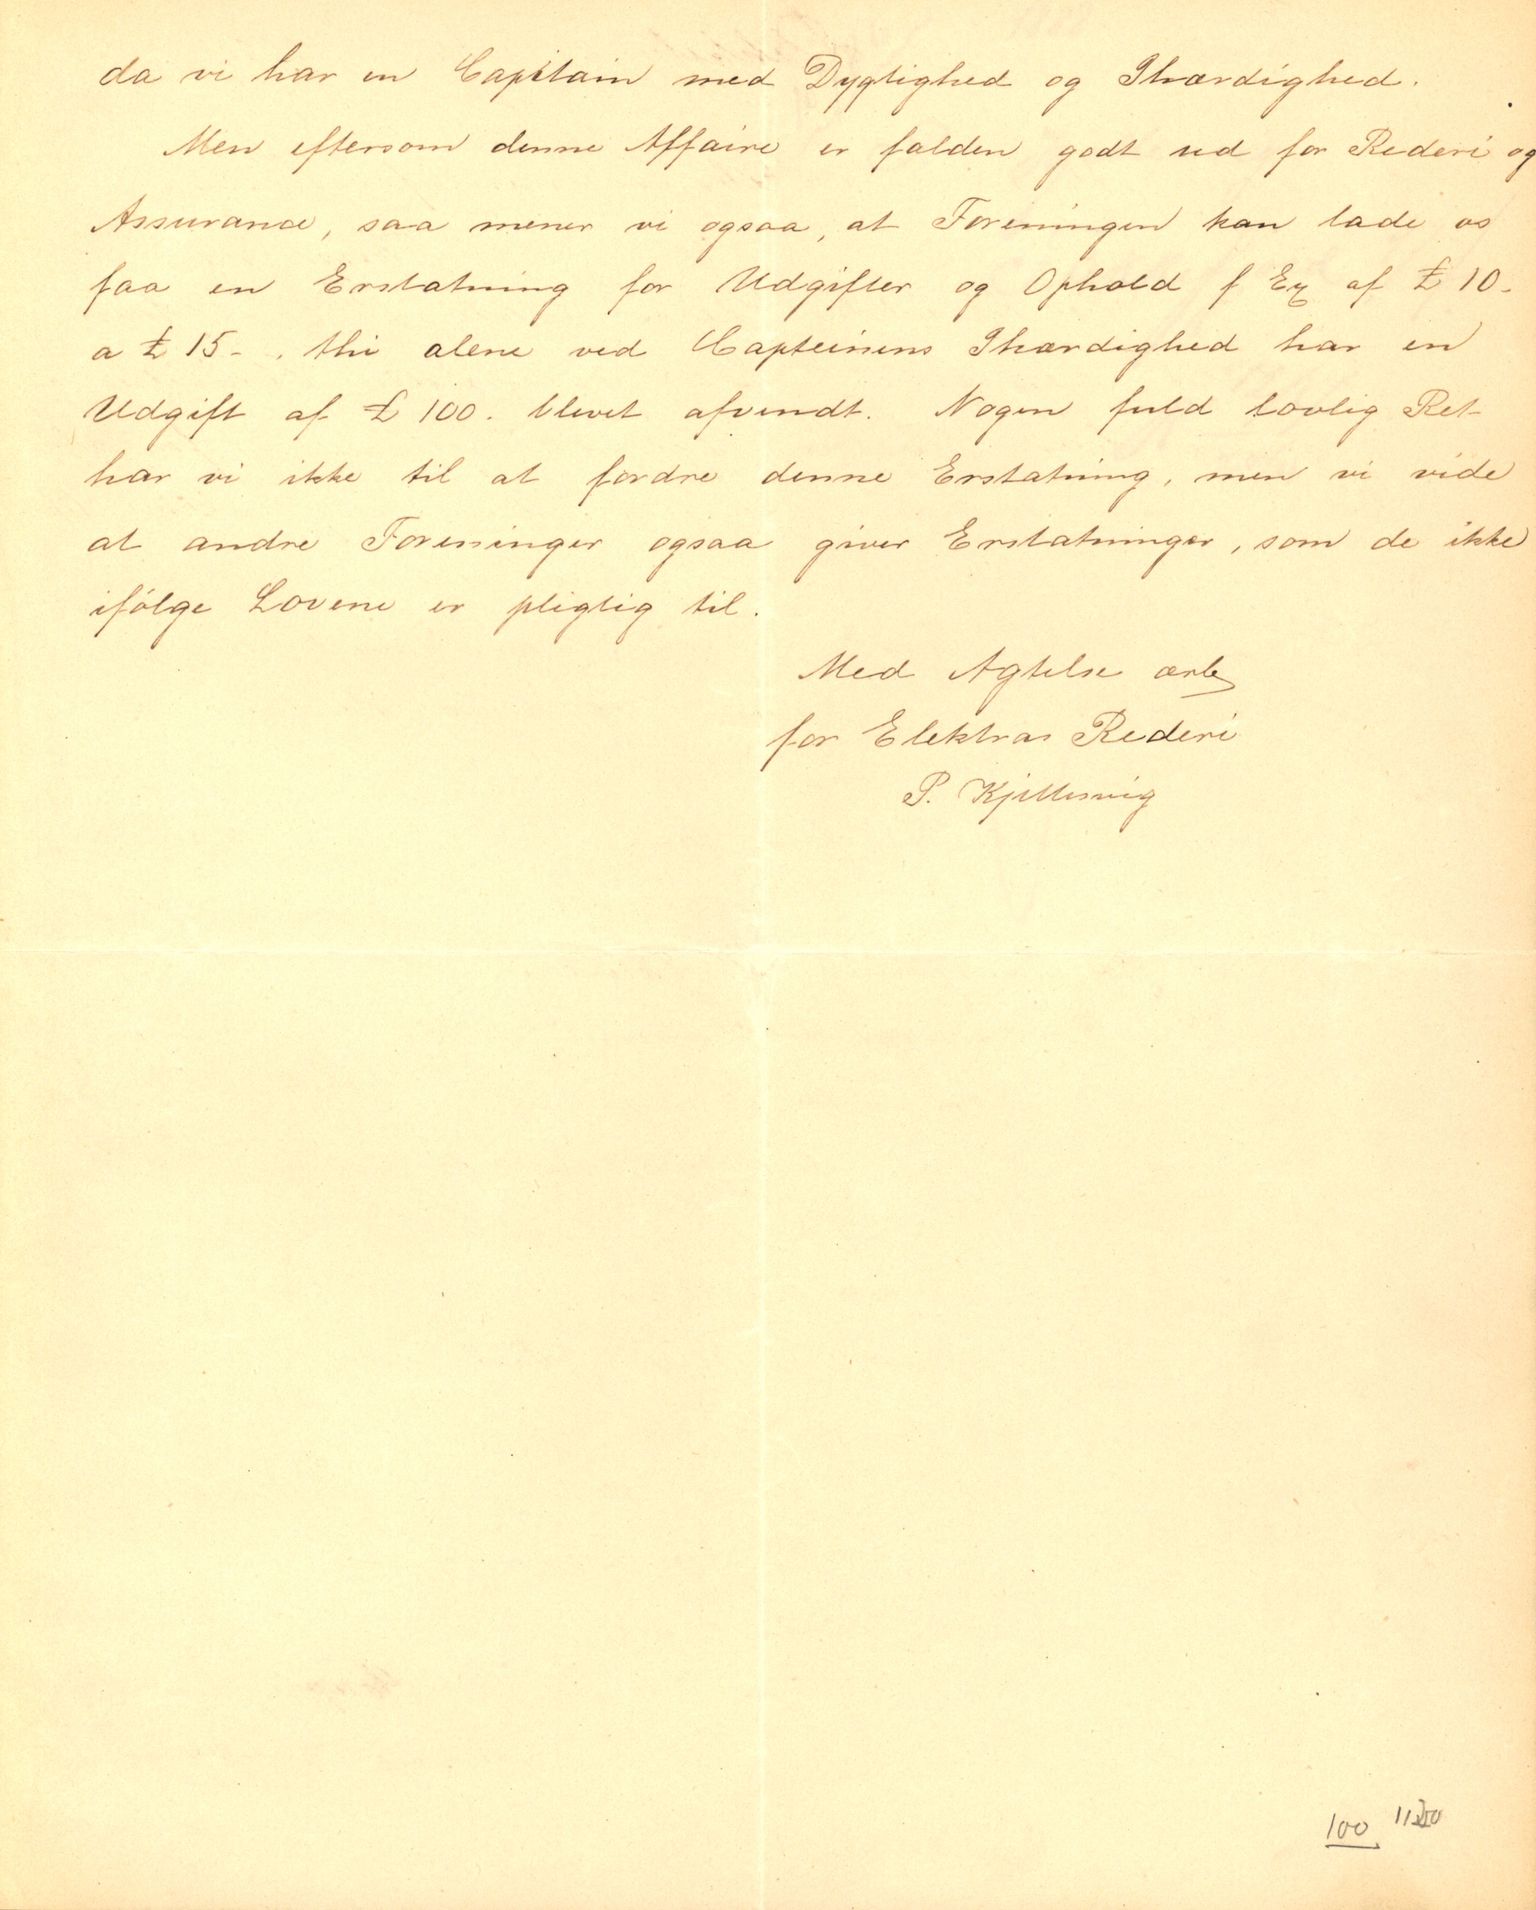 da vi har en Capitain med Dygtighed og Ihærdighed.
Men eftersom denne Affaire er falden godt ud for Rederi og
Assurance, saa mener vi ogsaa, at Foreningen kan lade os
faa en Erstatning for Udgifter og Ophold f Ex af £ 10-
a £ 15-, thi alene ved Capteinens Ihærdighed har en
Udgift af £ 100. blevet afvendt. Nogen fuld lovlig Ret
har vi ikke til at fordre denne Erstatning, men vi vide
at andre Foreninger ogsaa giver Erstatninger, som de ikke
ifølge Lovene er pligtig til.
Med Agtelse ærb
for Elektras Rederi
P. Kjellesvig
100